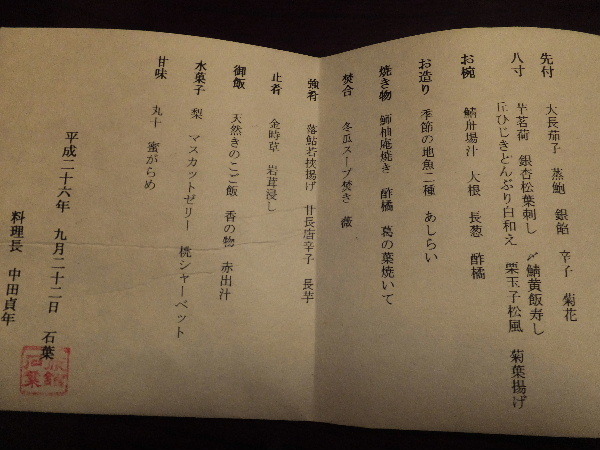 先付　大長茄子　蒸鮑　銀餡　辛子　菊花
八寸　芋茗荷　銀杏松葉刺し　〆鯖黄飯寿し
丘ひじきどんぶり白和え　栗玉子松風　菊葉揚げ
お椀　鱗舟場汁　大根　長葱　酢橘
お造り　季節の地魚二種　あしらい
焼き物　鰤柚庵焼き　酢橘　葛の葉焼いて
焚合　冬瓜スープ焚き　薇
強肴　落鮎若挟揚げ　甘長唐辛子　長芋
止肴　金時草　岩茸浸し
御飯　天然きのこご飯　香の物　赤出汁
水菓子　梨　マスカットゼリー　桃シャーベット
甘味　丸十　蜜がらめ
平成二十六年　九月二十二日　石葉
料理長　中田貞年
石葉